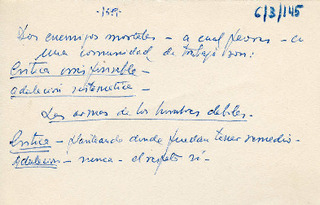 6/3/145
Dos enemigos mortales - a cual peores - en
una comunidad de trabajo son:
Crítica
adulación sistemática -
Las armas de los hombres débiles.
Crítica - planteando donde puedan tener remedio -
Adulación - nunca - el respeto sí -